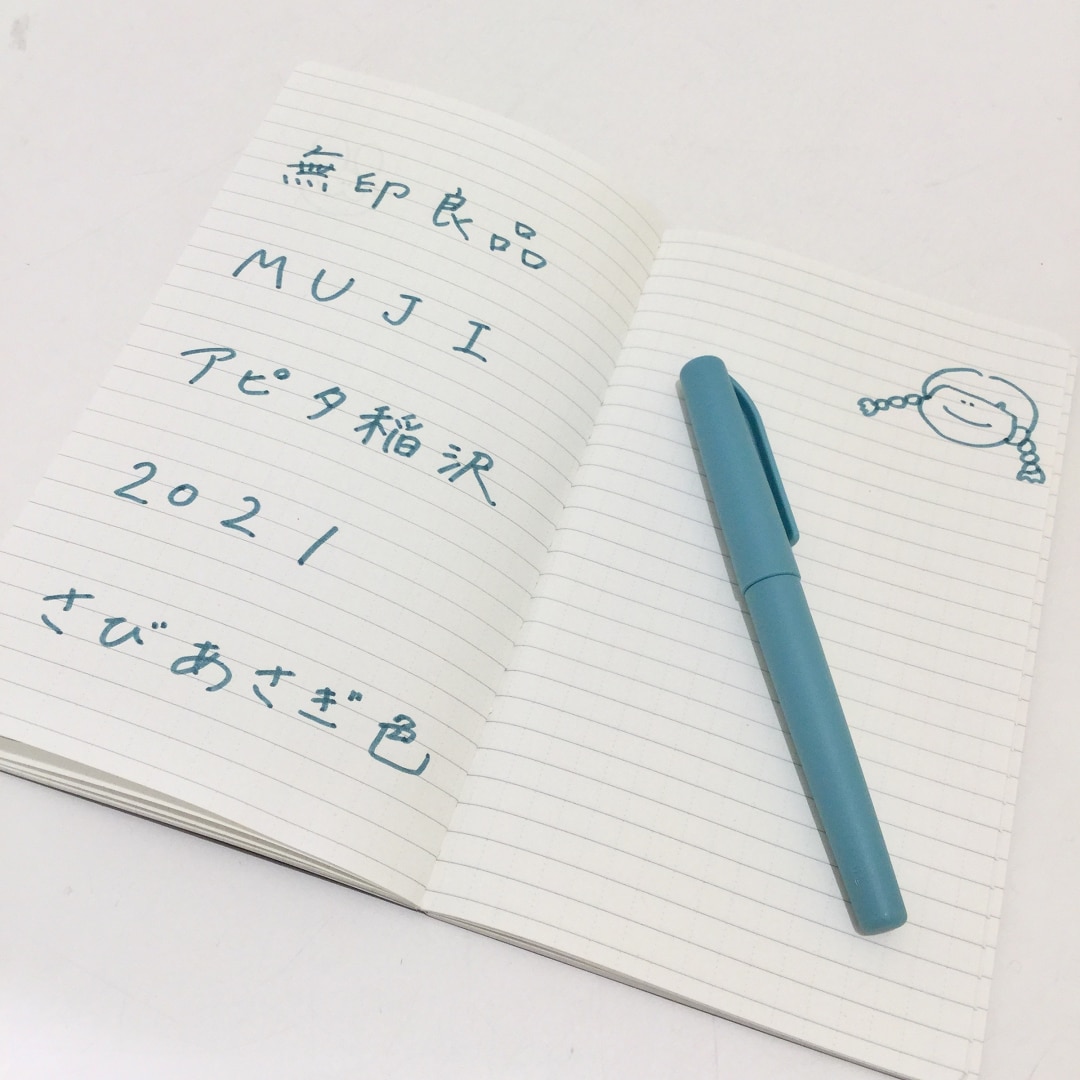 無印良品
MUJI
アピタ稲沢
2021
さびあさぎ色